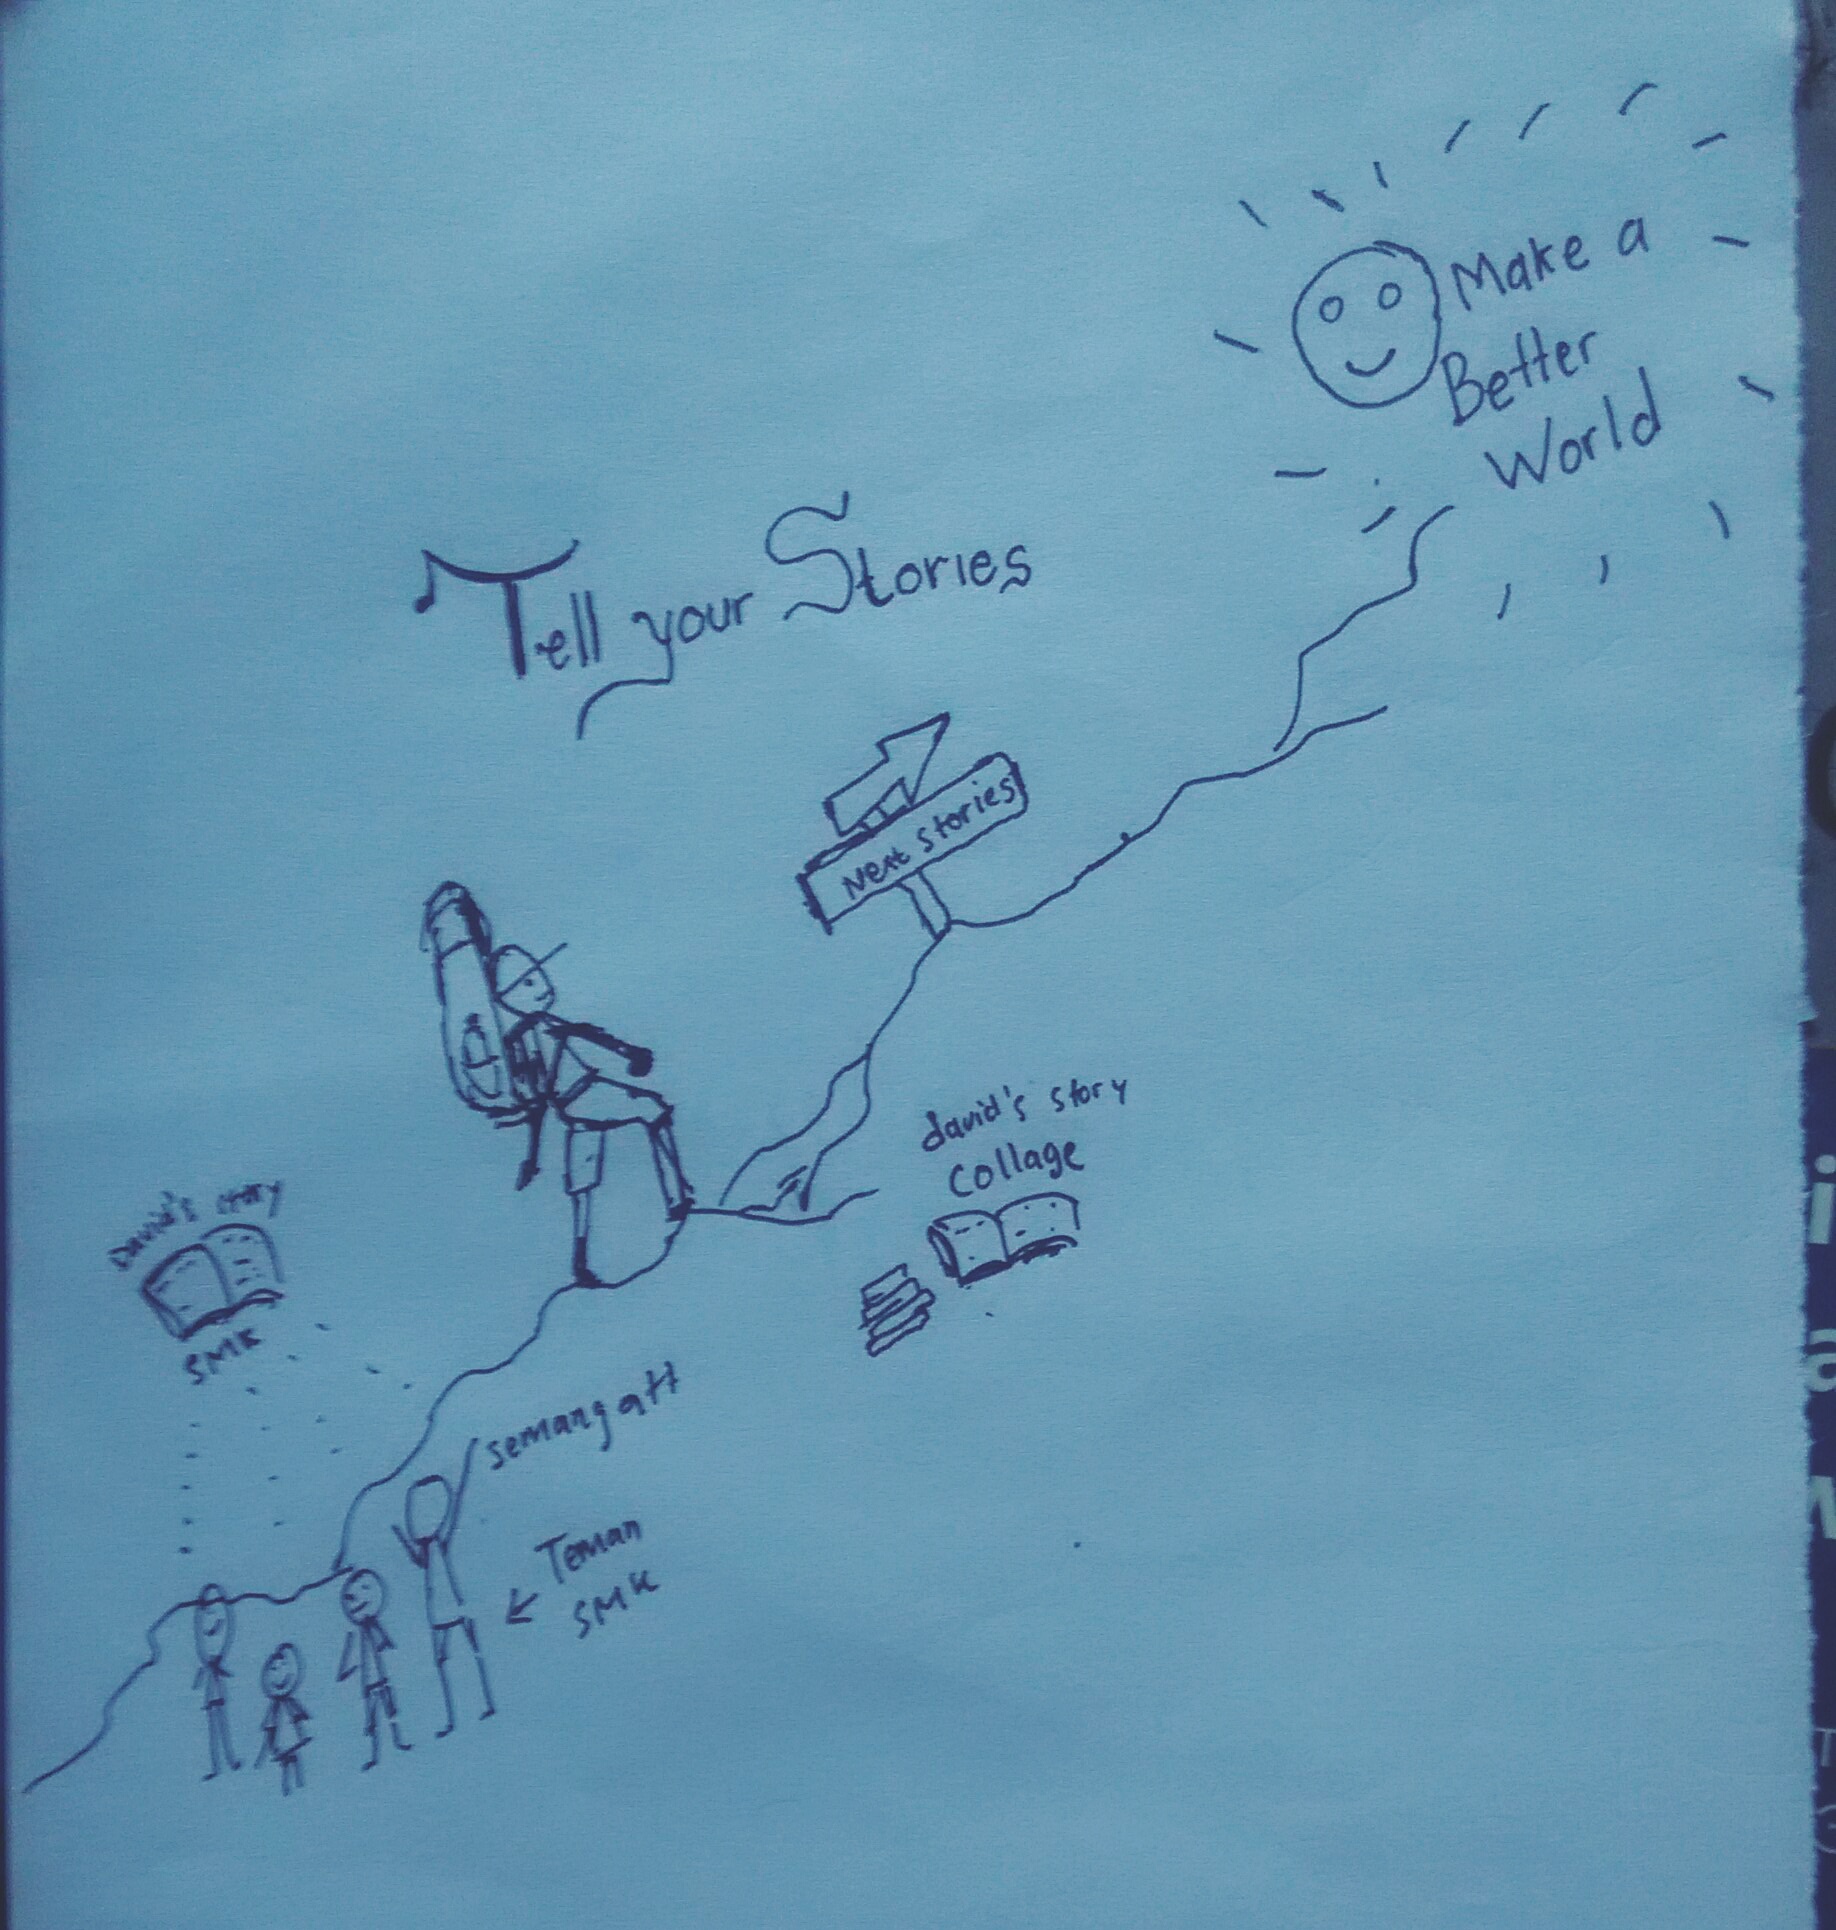 Make a
Better
World
Tell your Stories
Next Stories
david's story
collage
David's story
SMK
semangatt
Teman
SMK